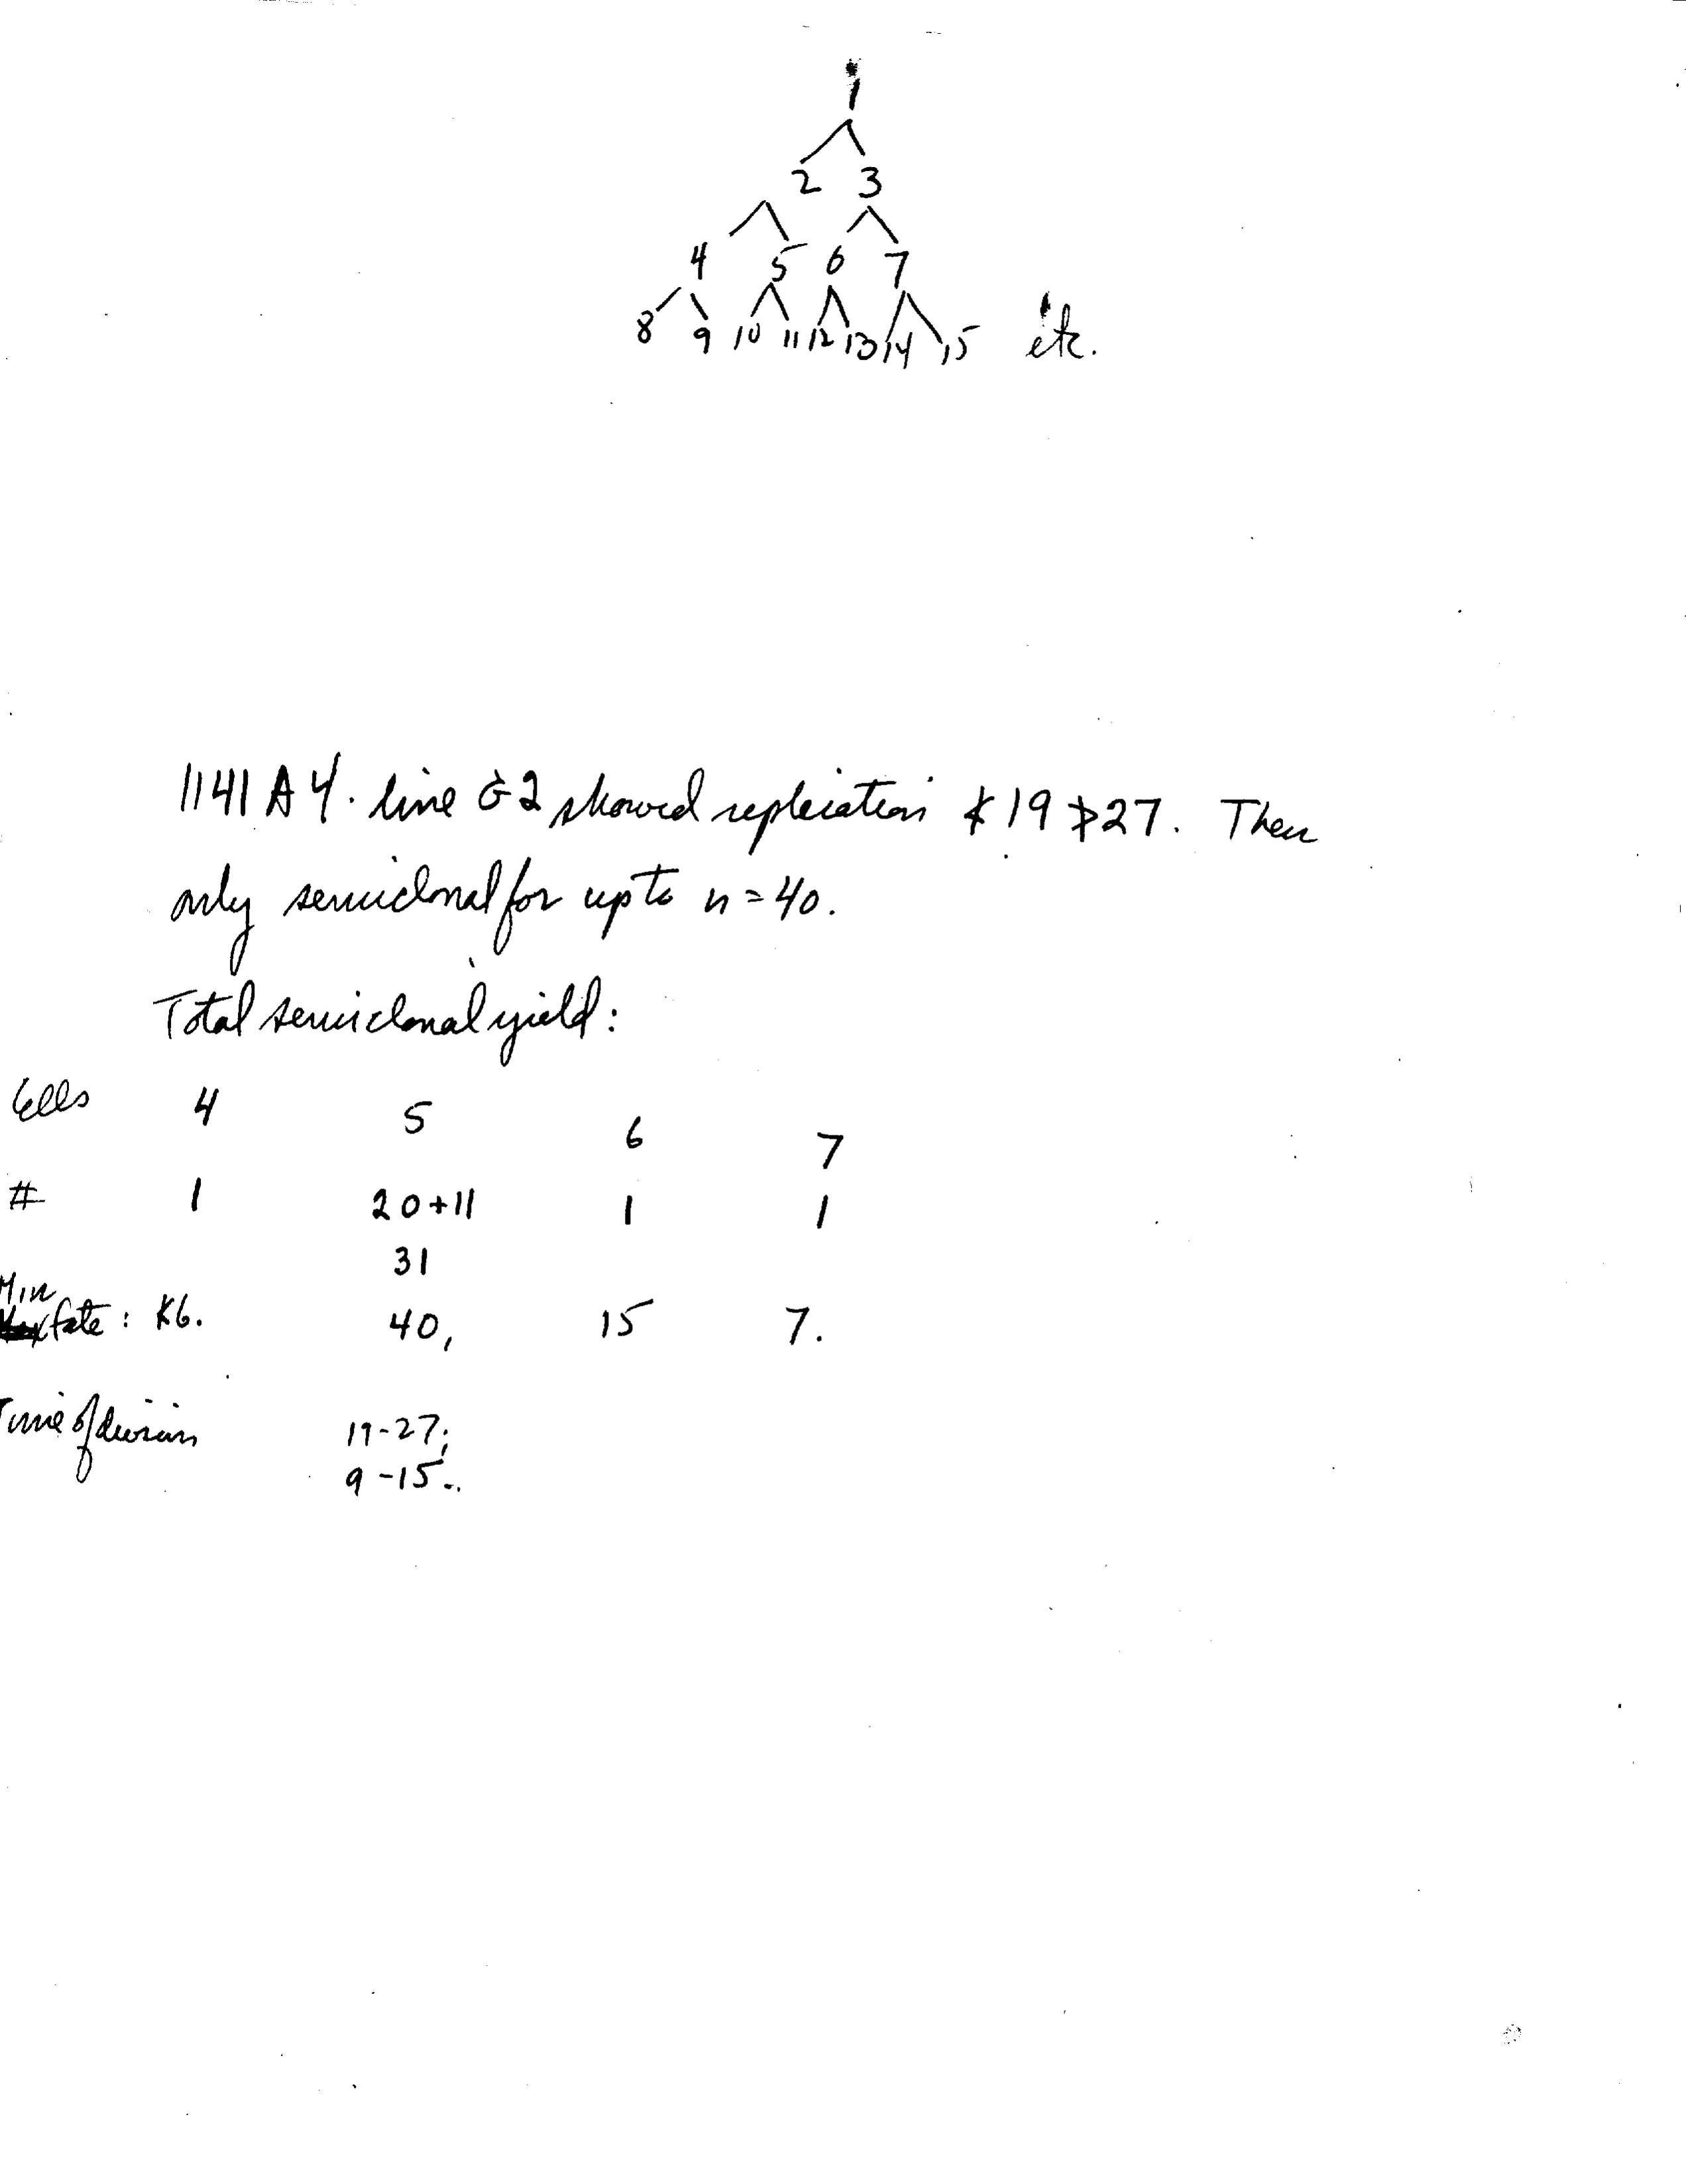 1
2 3
4 5 6 7
8 9 10 11 12 13 14 15 etc.
1141 A4. line G2 showed replication ≮ 19 ≯ 27. Then
only semiclonal for up to n = 40.
Total semiclonal yield:
Cells 4 5 6 7
# 1 20+11 1 1
31
Min
fate: K6. 40, 15 7.
Time of division 19-27;
9-15.